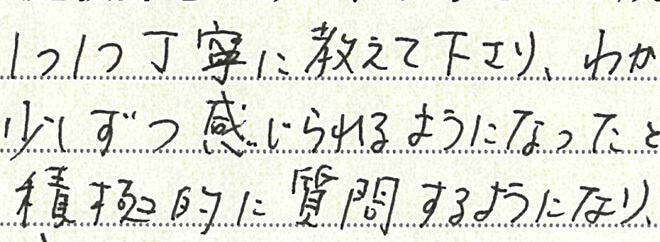 1つ1つ丁寧に教えて下さり、わか
少しずつ感じられるようになったと
積極的に質問するようになり、